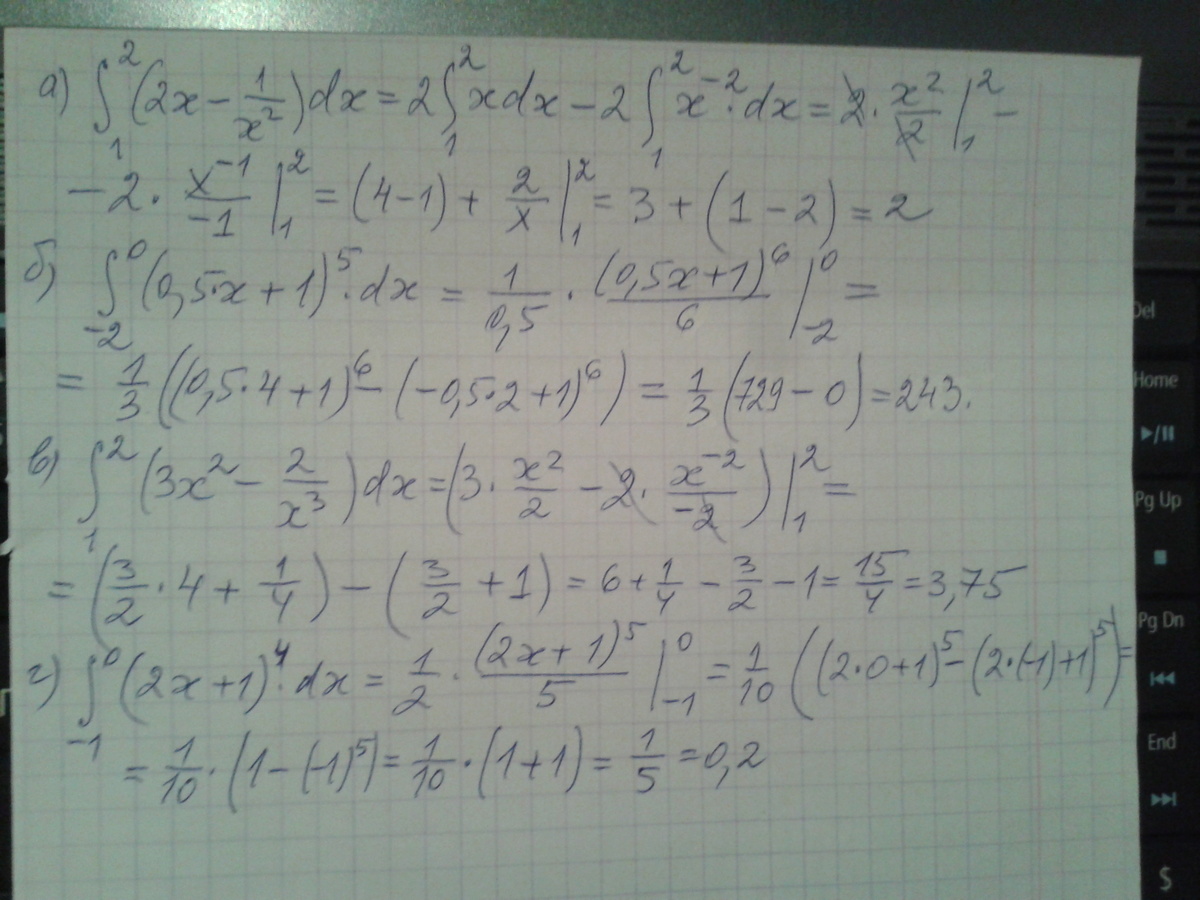 а) ∫₁² (2x − 1/x²) dx = 2 ∫₁² x dx − 2 ∫₁² x⁻² · dx = 2 · x²/2 |₁² −
− 2 · x⁻¹/−1 |₁² = (4−1) + 2/x |₁² = 3 + (1 − 2) = 2
б) ∫₋₂⁰ (0,5·x + 1)⁵ · dx = 1/0,5 · (0,5x+1)⁶/6 |₋₂⁰ =
= 1/3 ((0,5·4+1)⁶ − (−0,5·2+1)⁶) = 1/3 (729 − 0) = 243.
в) ∫₁² (3x² − 2/x³) dx = (3 · x²/2 − 2 · x⁻²/−2) |₁² =
= (3/2 · 4 + 1/4) − (3/2 + 1) = 6 + 1/4 − 3/2 − 1 = 15/4 = 3,75
г) ∫₋₁⁰ (2x+1)⁴ · dx = 1/2 · (2x+1)⁵/5 |₋₁⁰ = 1/10 ((2·0+1)⁵ − (2·(−1)+1)⁵) =
= 1/10 · (1 − (−1)⁵) = 1/10 · (1+1) = 1/5 = 0,2
Del
Home
Pg Up
Pg Dn
End
$